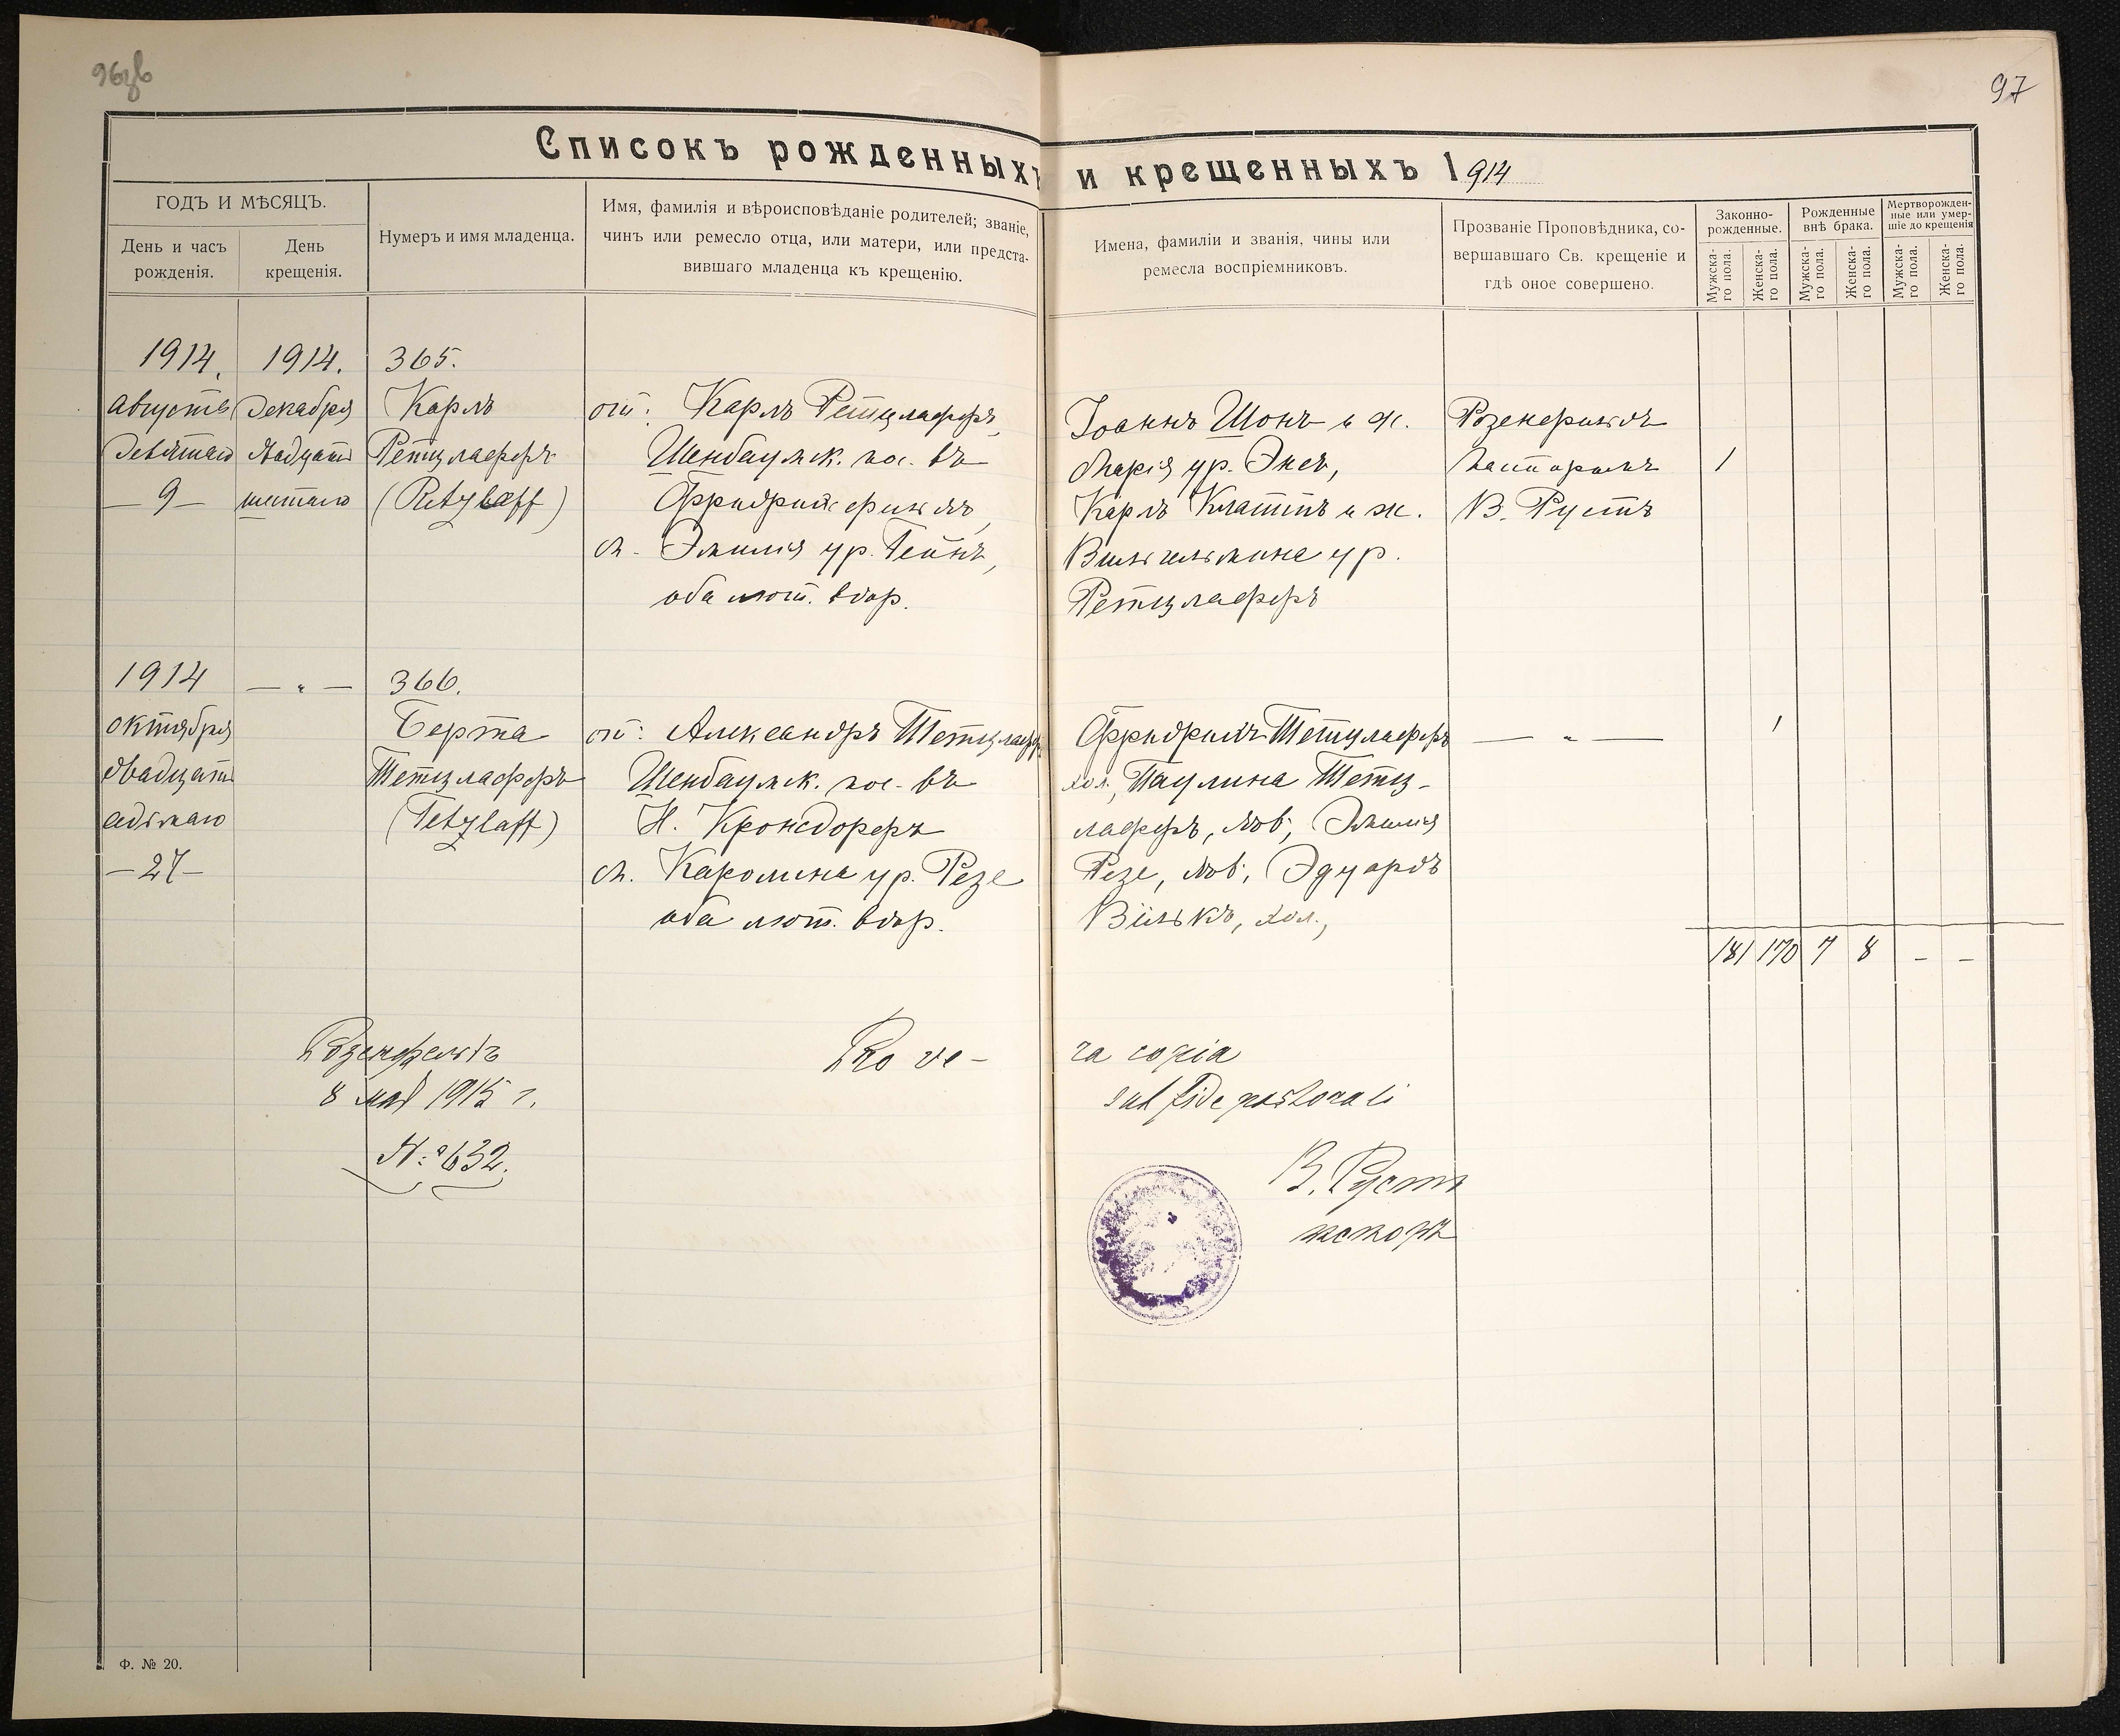 96об
97
Списокъ рожденныхъ и крещенныхъ 1914
ГОДЪ И МѢСЯЦЪ.
День и часъ рожденія.
День крещенія.
Нумеръ и имя младенца.
Имя, фамилія и вѣроисповѣданіе родителей; званіе,
чинъ или ремесло отца, или матери, или предста-
вившаго младенца къ крещенію.
Имена, фамиліи и званія, чины или
ремесла воспріемниковъ.
Прозваніе Проповѣдника, со-
вершавшаго Св. крещеніе и
гдѣ оное совершено.
Законно-
рожденные.
Рожденные
внѣ брака.
Мертворожден-
ные или умер-
шіе до крещенія
Мужска-
го пола.
Женска-
го пола.
Мужска-
го пола.
Женска-
го пола.
Мужска-
го пола.
Женска-
го пола.
1914.
Августа
девятаго
— 9 —
1914.
Декабря
двадцать
шестаго
365.
Карлъ
Ретцлаффъ
(Retzlaff)
от: Карлъ Ретцлаффъ,
Шенбаумск. пос. въ
Фридрихсфельдъ,
м. Эмилія ур. Гейнъ,
оба лют. вѣр.
Іоаннъ Шонъ и ж.
Марія ур.
Карлъ Клаттъ и ж.
Вильгельмина ур.
Ретцлаффъ
Розенфельдъ
Пасторомъ
В. Рустъ
1
1914
октября
двадцать
седьмаго
— 27 —
— „ —
366.
Берта
Тетцлаффъ
(Tetzlaff)
от: Александръ Тетцлаффъ
Шенбаумск. пос. въ
Н. Кронсдорфъ
м. Каролина ур. Резе
оба лют. вѣр.
Фридрихъ Тетцлаффъ
хол., Паулина Тетц-
лаффъ, дѣв., Эмилія
Резе, дѣв., Эдуардъ
Вильке, хол.,
— „ —
1
181 170 7 8 – –
Розенфельдъ
8 мая 1915 г.
№ 632.
Pro ve-
ra copia
sub fide pastorali
В. Рустъ
пасторъ
Ф. № 20.